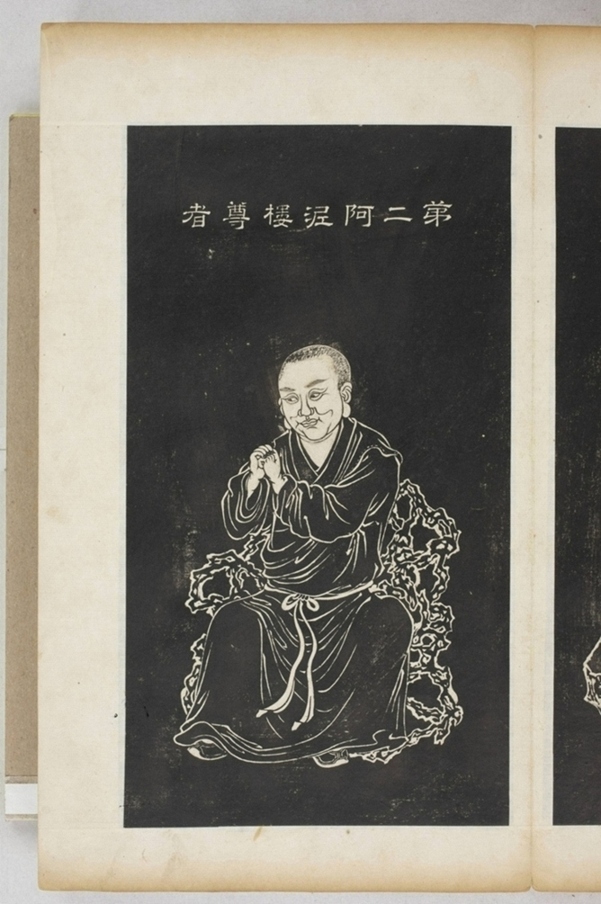 第二阿泥樓尊者